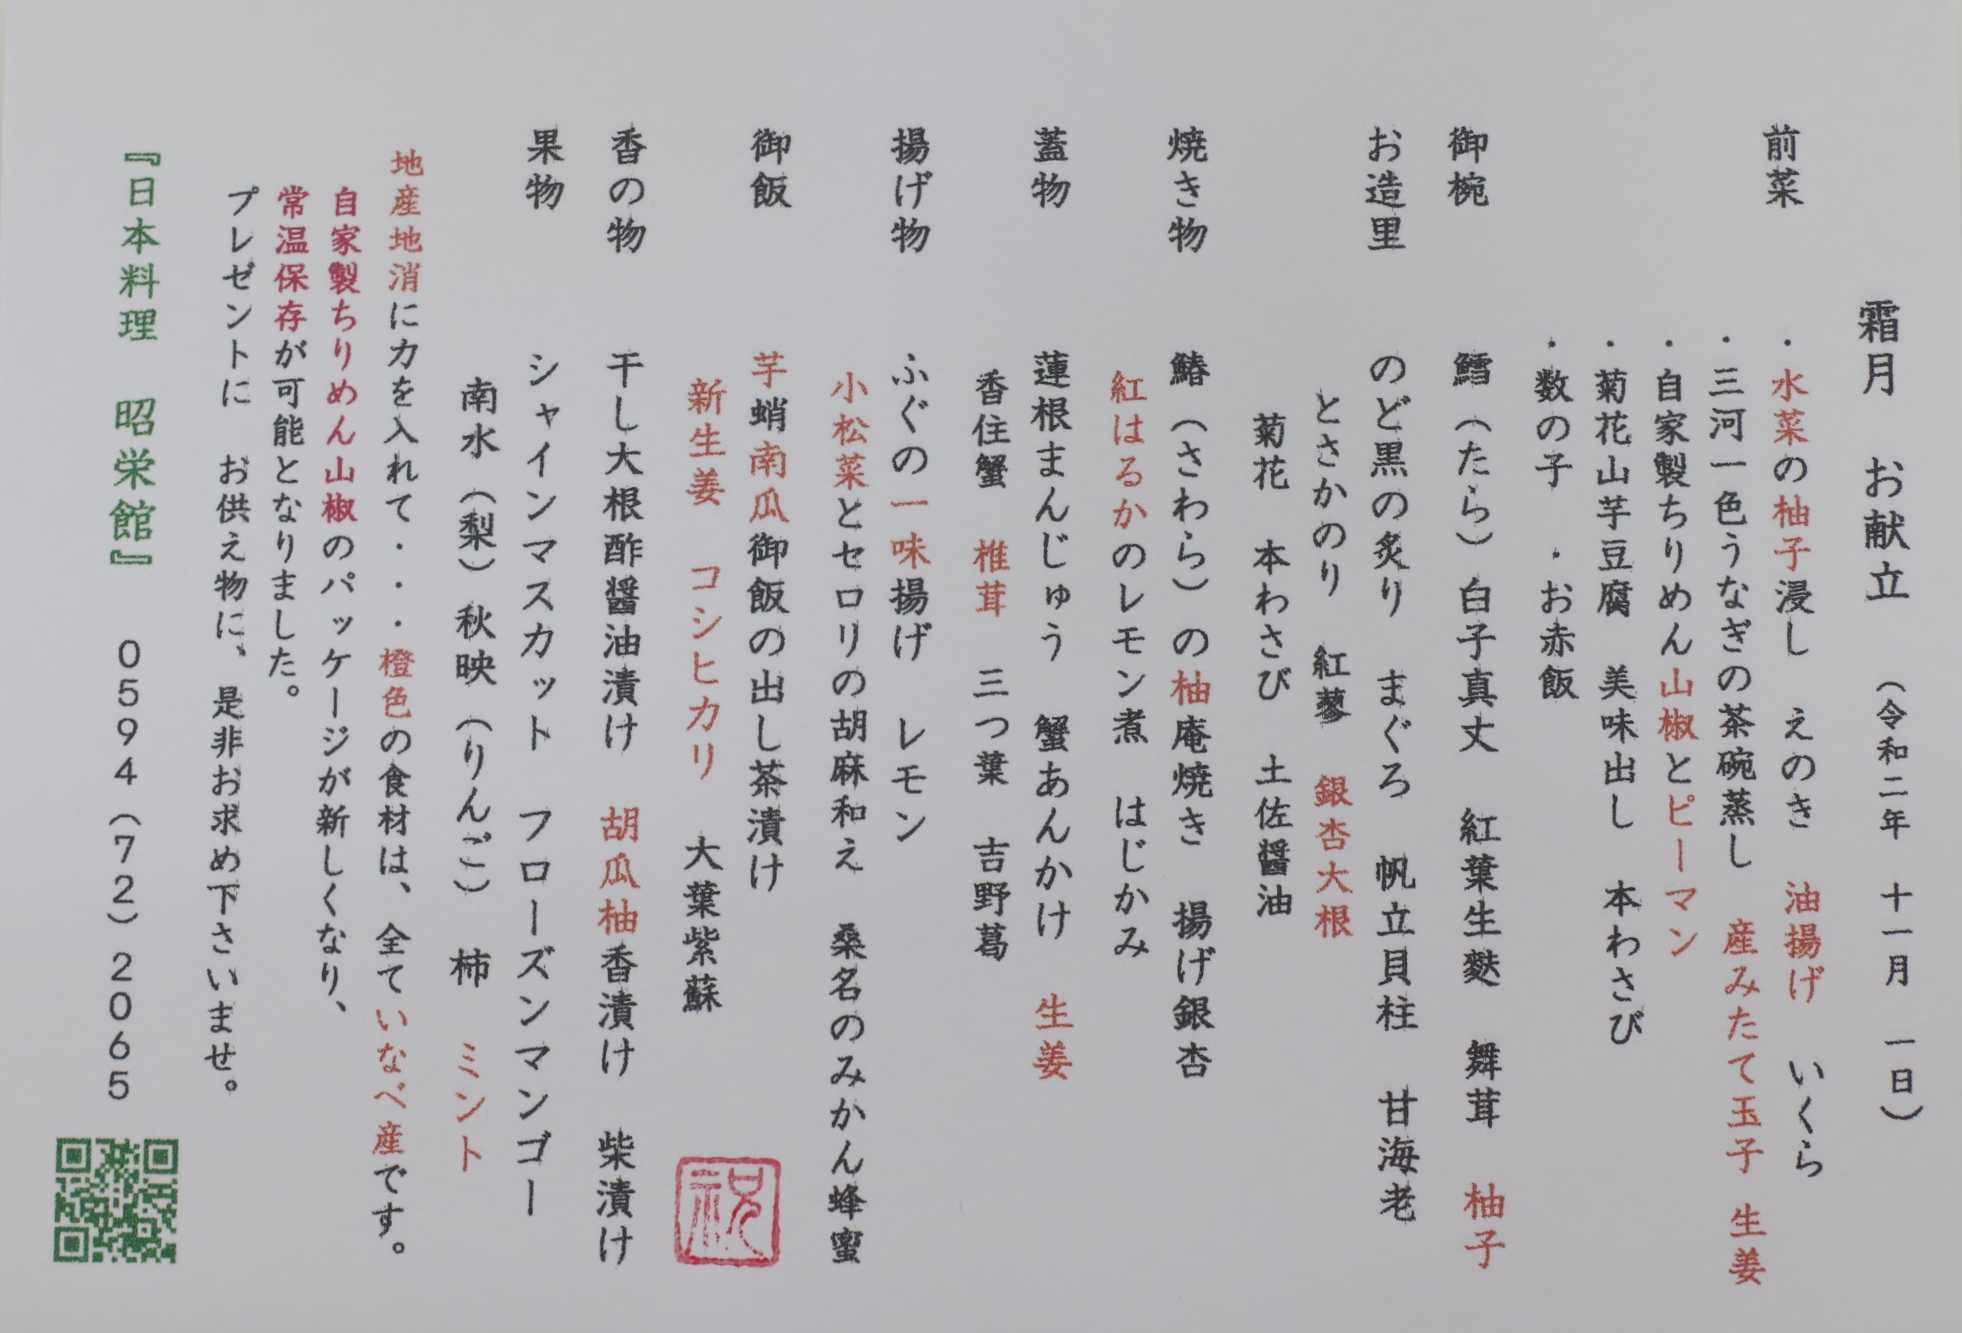 霜月　お献立　（令和二年　十一月　一日）
前菜　・水菜の柚子浸し　えのき　油揚げ　いくら
・三河一色うなぎの茶碗蒸し　産みたて玉子　生姜
・自家製ちりめん山椒とピーマン
・菊花山芋豆腐　美味出し　本わさび
・数の子　・お赤飯
御椀　鱈（たら）白子真丈　紅葉生麩　舞茸　柚子
お造里　のど黒の炙り　まぐろ　帆立貝柱　甘海老
とさかのり　紅蓼　銀杏大根
菊花　本わさび　土佐醤油
焼き物　鰆（さわら）の柚庵焼き　揚げ銀杏
紅はるかのレモン煮　はじかみ
蓋物　蓮根まんじゅう　蟹あんかけ　生姜
香住蟹　椎茸　三つ葉　吉野葛
揚げ物　ふぐの一味揚げ　レモン
小松菜とセロリの胡麻和え　桑名のみかん蜂蜜
御飯　芋蛸南瓜御飯の出し茶漬け
新生姜　コシヒカリ　大葉紫蘇
香の物　干し大根酢醤油漬け　胡瓜柚香漬け　柴漬け
果物　シャインマスカット　フローズンマンゴー
南水（梨）秋映（りんご）　柿　ミント
地産地消に力を入れて・・・橙色の食材は、全ていなべ産です。
自家製ちりめん山椒のパッケージが新しくなり、
常温保存が可能となりました。
プレゼントに　お供え物に、是非お求め下さいませ。
『日本料理　昭栄館』　0594（72）2065
祝